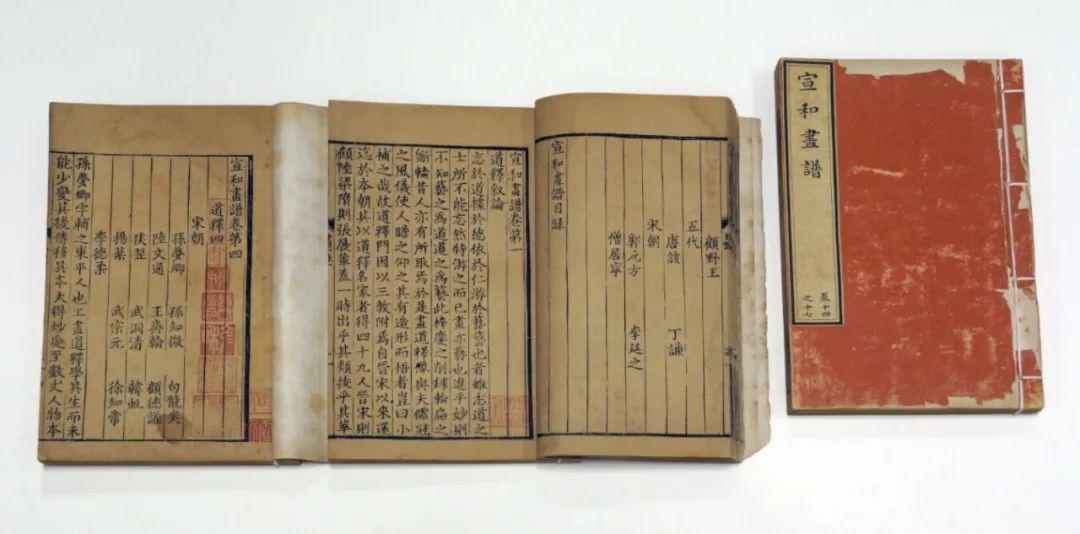 宣和畫譜
卷十四
之十七
顧野王
五代
唐垓 丁謙
宋朝
郭元方 李延之
僧居寧
宣和畫譜目録
宣和畫譜卷第一
道釋叙論
志於道據於德依於仁游於藝藝也者雖志道之
士所不能忘然特游之而已畫亦藝也進乎妙則
不知藝之為道道之為藝此梓慶之削鐻輪扁之
斲輪昔人亦有所取焉於是畫道釋像與夫儒冠
之風儀使人瞻之仰之其有造形而悟者豈曰小
補之哉故道釋門因以三教附焉自晉宋以來還
迄於本朝其以道釋名家者得四十九人晉宋則
顧陸梁隋則張展輩蓋一時出乎其類拔乎其萃
宣和畫譜卷第四
道釋四
宋朝
孫夢卿 孫知微 勾龍爽
陸文通 王齊翰 顧德謙
侯翌 武洞清 韓虬
楊棐 武宗元 徐知常
李德柔
孫夢卿字輔之東平人也工畫道釋學吳生而未
能少變其後傳移吳本大得妙處至數丈人物本